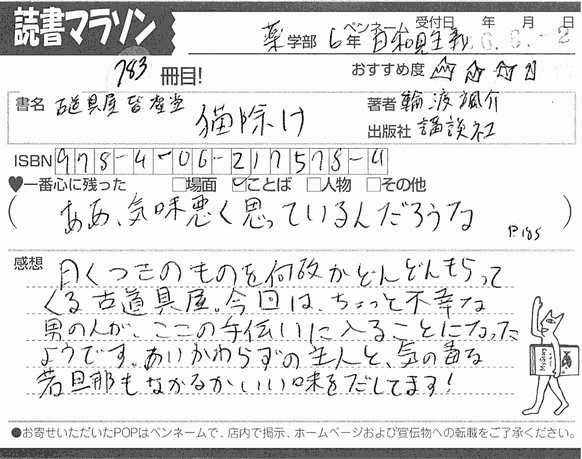 読書マラソン
薬学部 6年 ペンネーム 受付日 年 月 日
6.6.-2
783冊目!
おすすめ度
書名 古道具屋 皆塵堂 猫除け
著者 輪渡颯介
出版社 講談社
ISBN 978-4-06-217578-4
♥一番心に残った □場面 ☑ことば □人物 □その他
(ああ、気味悪く思っているんだろうな P185)
感想 曰くつきのものを何故かどんどんもらって
くる古道具屋。今回は、ちょっと不幸な
男の人が、ここの手伝いに入ることになった
ようです。あいかわらずの主人と、気の毒な
若旦那もなかなかいい味をだしてます!
●お寄せいただいたPOPはペンネームで、店内で掲示、ホームページおよび宣伝物への転載をご了承ください。